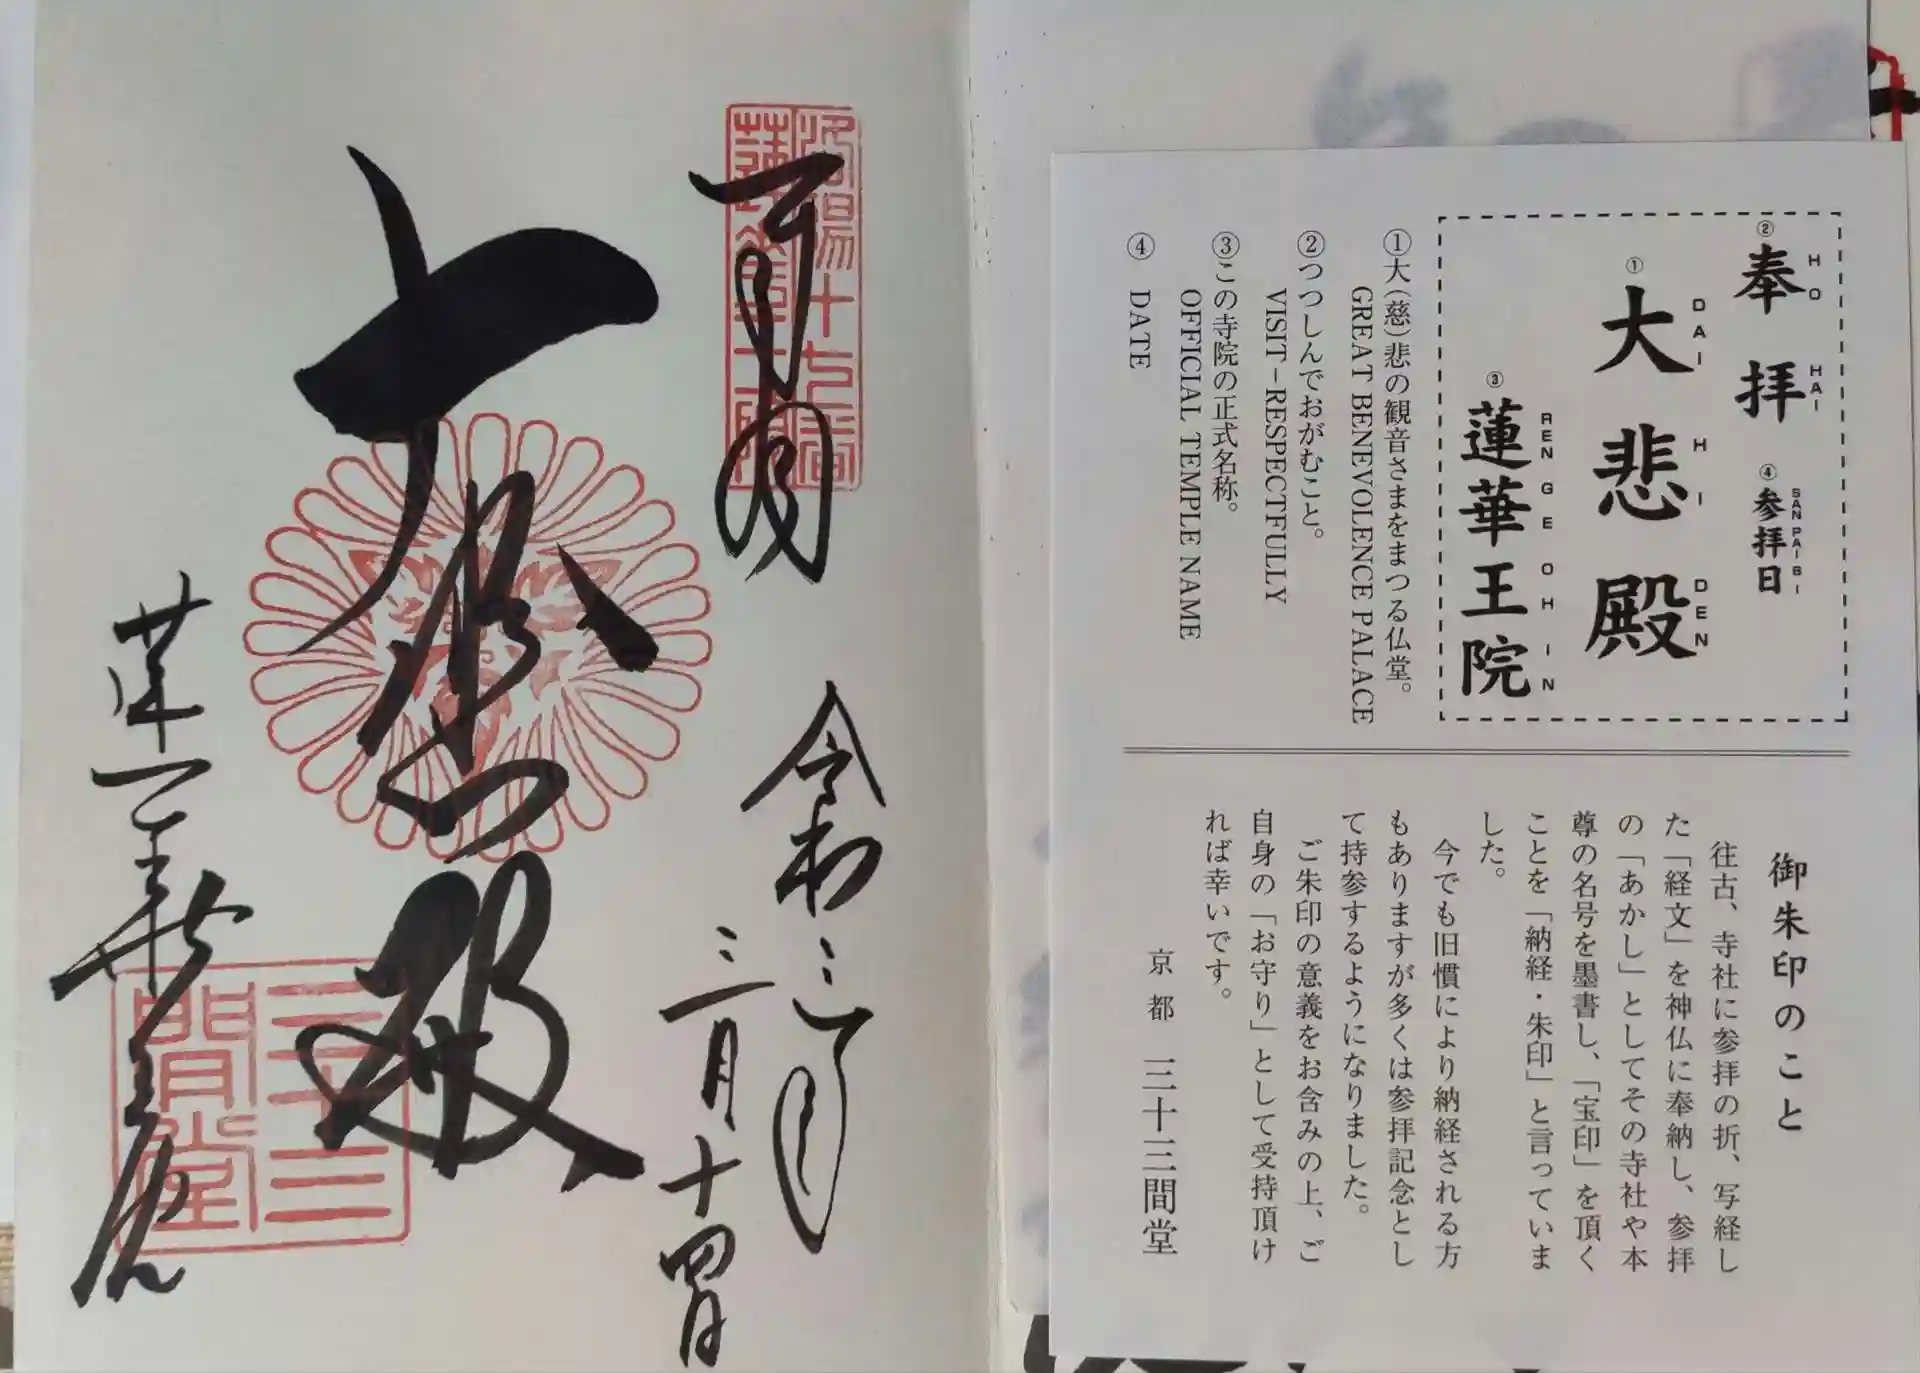 奉拝
大悲殿
蓮華王院
令和三年
三月十四日
洛陽十七番
蓮華王院
三十三
間堂
② 奉拝 HO HAI
④ 参拝日 SAN PAI BI
① 大悲殿 DAI HI DEN
③ 蓮華王院 REN GE OH IN
①大(慈)悲の観音さまをまつる仏堂。
GREAT BENEVOLENCE PALACE
②つつしんでおがむこと。
VISIT–RESPECTFULLY
③この寺院の正式名称。
OFFICIAL TEMPLE NAME
④ DATE
御朱印のこと
往古、寺社に参拝の折、写経し
た「経文」を神仏に奉納し、参拝
の「あかし」としてその寺社や本
尊の名号を墨書し、「宝印」を頂く
ことを「納経・朱印」と言っていま
した。
今でも旧慣により納経される方
もありますが多くは参拝記念とし
て持参するようになりました。
ご朱印の意義をお含みの上、ご
自身の「お守り」として受持頂け
れば幸いです。
京都 三十三間堂